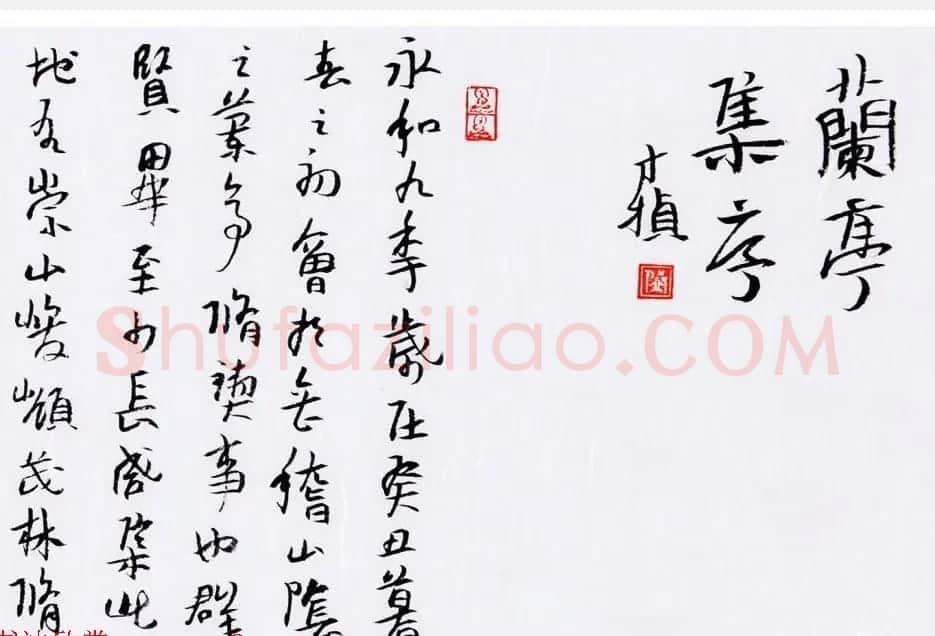 蘭亭
集序
永和九秊歲在癸丑暮
春之初會於會稽山陰
之蘭亭脩禊事也群
賢畢至少長咸集此
地有崇山峻嶺茂林脩
Shufaziliao.COM